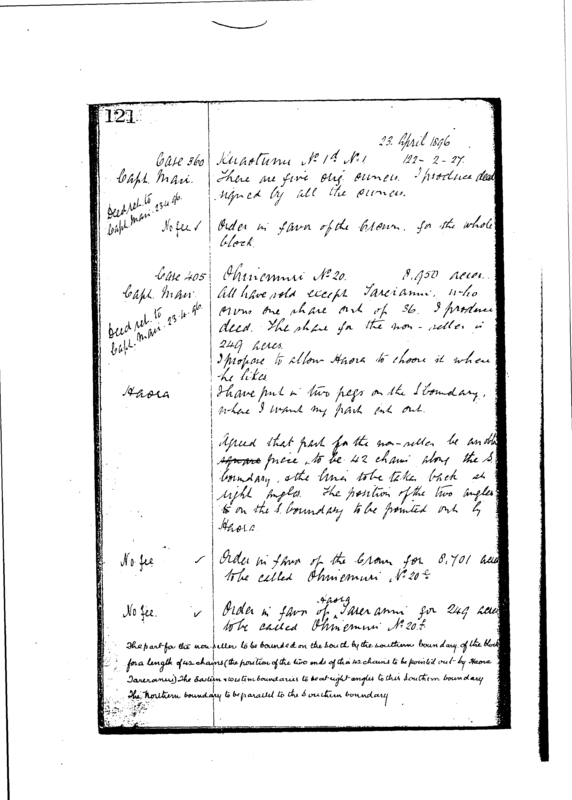 121
23 April 1896
Case 360 Kuaotunu No 1d No 1 122-2-27.
Capt. Mair. There are five orig owners. I produce deed
signed by all the owners.
Deed ret. to
Capt. Mair. 23.4.96.
No fee ✓ Order in favor of the Crown. for the whole
block.
Case 405 Ohinemuri No 20. 8.950 acres.
Capt. Mair All have sold except Tareranui. who
owns one share out of 36. I produce
Deed ret. to
Capt. Mair. 23.4.96.
deed. The share for the non-seller is
249 acres.
I propose to allow Haora to choose it where
he likes
Haora I have put in two pegs on the S boundary.
where I want my part cut out.
Agreed that part for the non-seller be an
square piece, to be 42 chains along the S.
boundary, & the lines to be taken back at
right angles. The position of the two angles
on the S. boundary to be pointed out by
Haora
No fee ✓ Order in favor of the Crown for 8,701 acres
to be called Ohinemuri No 20
No fee. ✓ Order in favor of Haora Tareranui for 249 acres
to be called Ohinemuri No 20
The part for the non seller to be bounded on the south by the southern boundary of the block
for a length of 42 chains (the position of the two ends of the 42 chains to be pointed out by Haora
Tareranui) The Eastern & western boundaries to be at right angles to this Southern boundary
The Northern boundary to be parallel to the Southern boundary